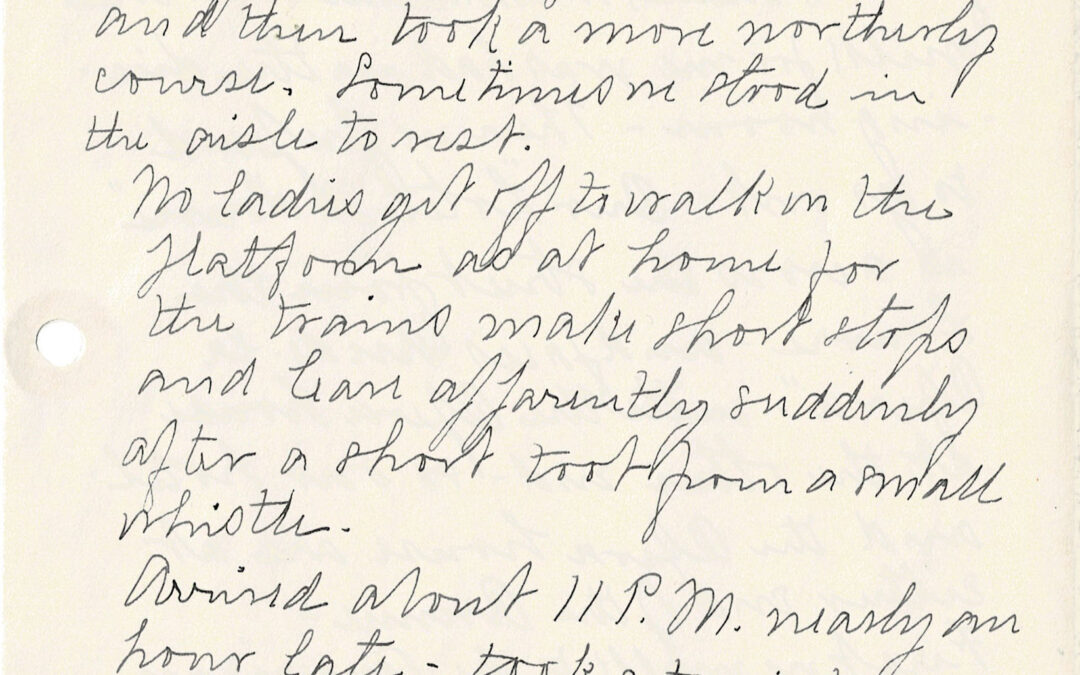 and then took a more northerly
course. Sometimes we stood in
the aisle to rest.
No ladies get off to walk on the
platform as at home for
the trains make short stops
and leave apparently suddenly
after a short toot from a small
whistle.
Arrived about 11 P.M. nearly an
hour late - took